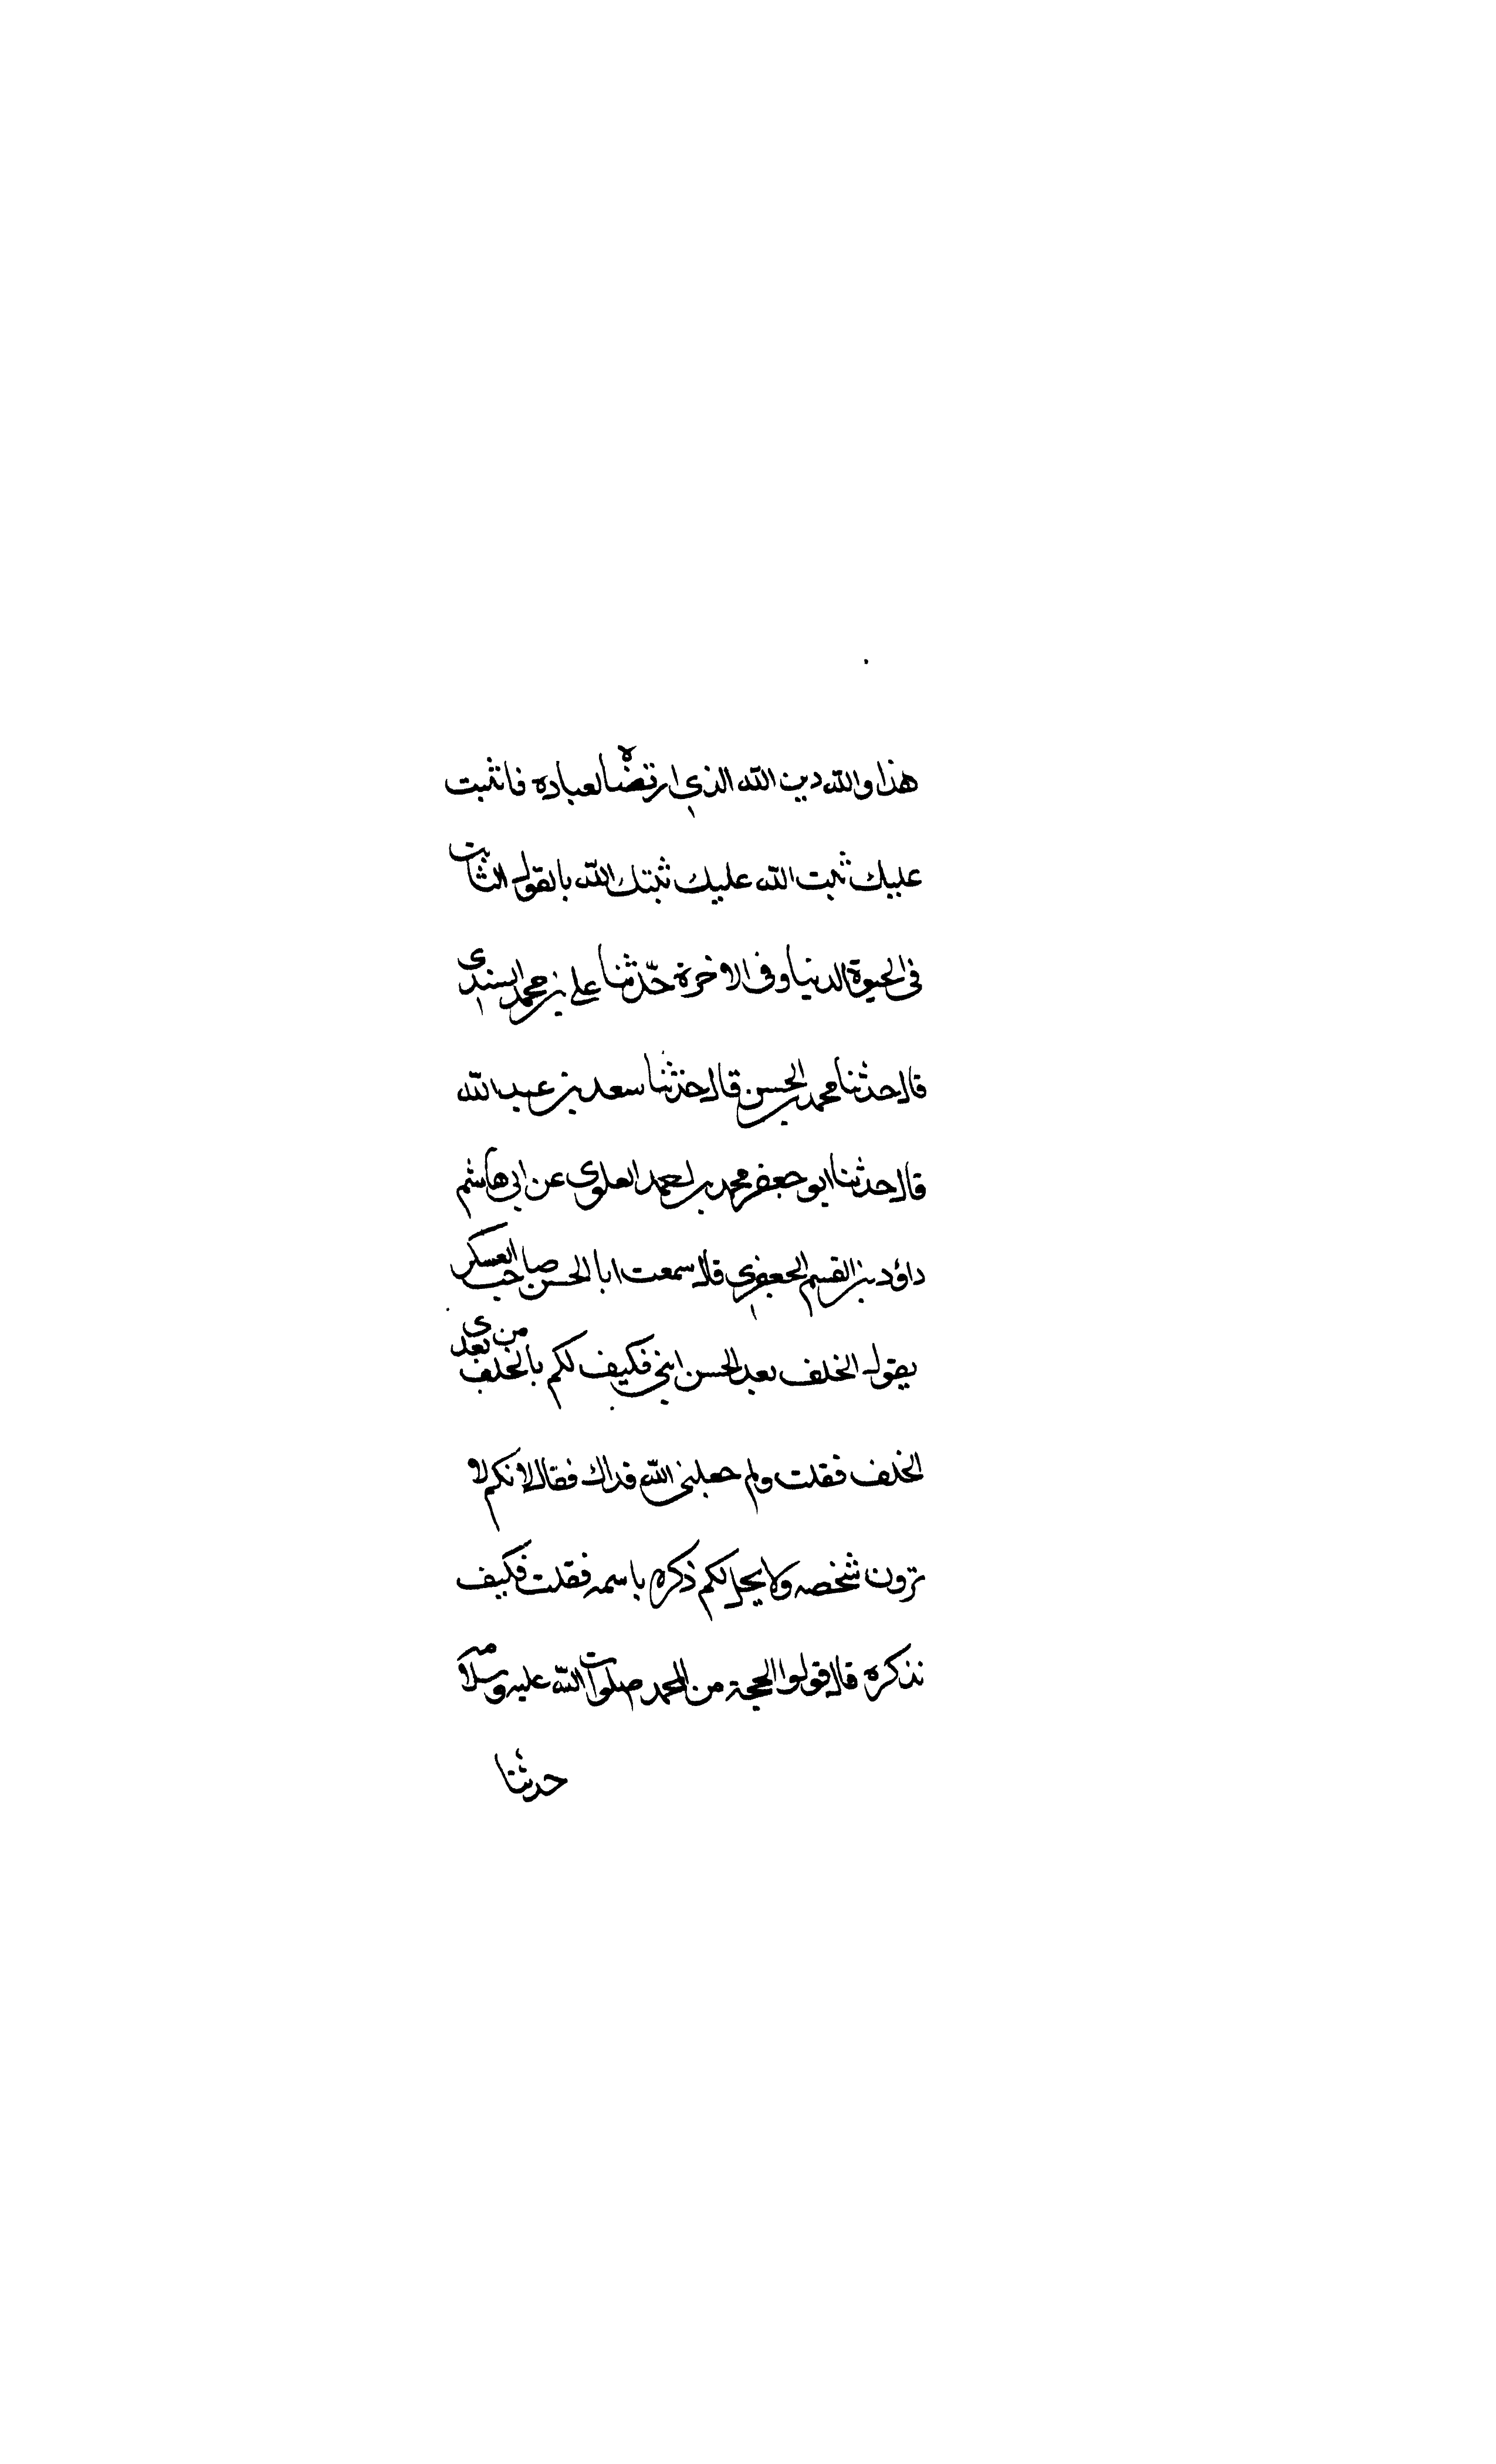 هذا والله دين الله الذي ارتضاه لعباده فاثبت
عليك ثبت الله عليك ثبتك الله بالقول الثابت
في الحيوة الدنيا وفي الاخرة حدّثنا علي بن محمد السندي
قال حدثنا محمد بن الحسن قال حدثنا سعد بن عبد الله
قال حدثنا ابو جعفر محمد بن احمد العلوي عن ابي هاشم
داؤد بن القسم الجعفري قال سمعت ابا الحسن صاحب العسكر
يقول الخلف بعد الحسن ابني فكيف لكم بالخلف من بعدي
الخلف فقلت ولم جعلني الله فداك فقال لانكم لا
ترون شخصه ولا يحل لكم ذكره باسمه فقلت فكيف
نذكره قال قولوا الحجة من ال محمد صلوات الله عليه وسلامه
حدثنا